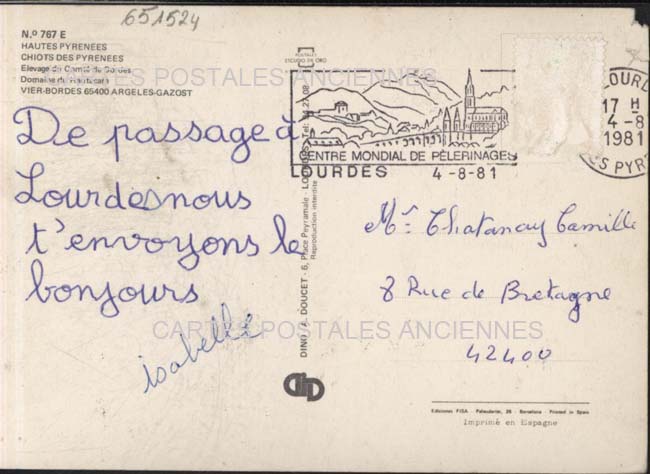 651524
N.º 767 E
HAUTES PYRENEES
CHIOTS DES PYRENEES
Elevage du Comté de Bordes
Domaine du
VIER-BORDES 65400 ARGELES-GAZOST
CARTES POSTALES ANCIENNES
De passage à
Lourdes nous
t'envoyons le
bonjours
isabelle
POSTALES
ESCUDO DE ORO
CENTRE MONDIAL DE PÈLERINAGES
LOURDES 4-8-81
LOURD
17 H
4-8
1981
S PYR
DINO, A. DOUCET - 6, Place Peyramale - LOURDES - Tel: 94.27.08
Reproduction interdite
Mr. Chatanay Camille
8 Rue de Bretagne
42400
CARTES POSTALES ANCIENNES
Ediciones FISA - Palaudarias, 26 - Barcelona - Printed in Spain
Imprimé en Espagne